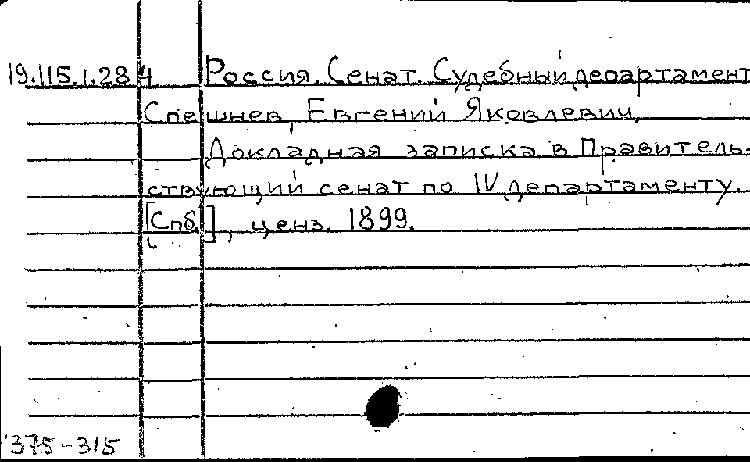 19.115.1.284 Россия. Сенат. Судебный департамент
Спешнев, Евгений Яковлевич.
Докладная записка в Правитель-
ствующий сенат по IV департаменту.
[Спб.], ценз. 1899.
375-315